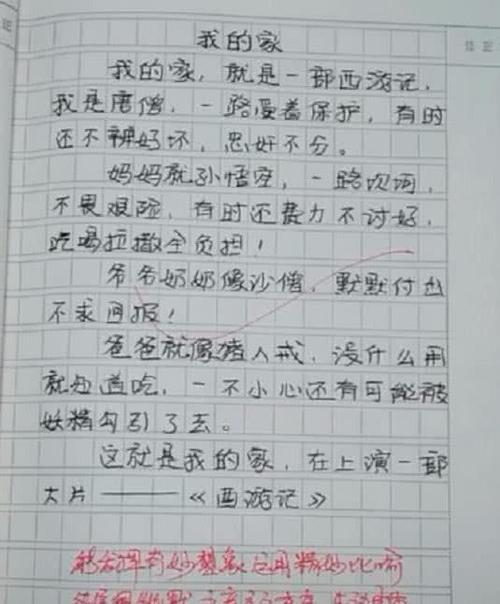 我的家
我的家，就是一部西游记，
我是唐僧，一路受着保护，有时
还不辨好坏，忠奸不分。
妈妈就孙悟空，一路坎坷，
不畏艰险，有时还费力不讨好，
吃喝拉撒全负担！
爷爷奶奶像沙僧，默默付出
不求回报！
爸爸就像猪八戒，没什么用
就知道吃，一不小心还有可能被
妖精勾引了去。
这就是我的家，在上演一部
大片——《西游记》
能发挥奇妙想象，运用精妙比喻